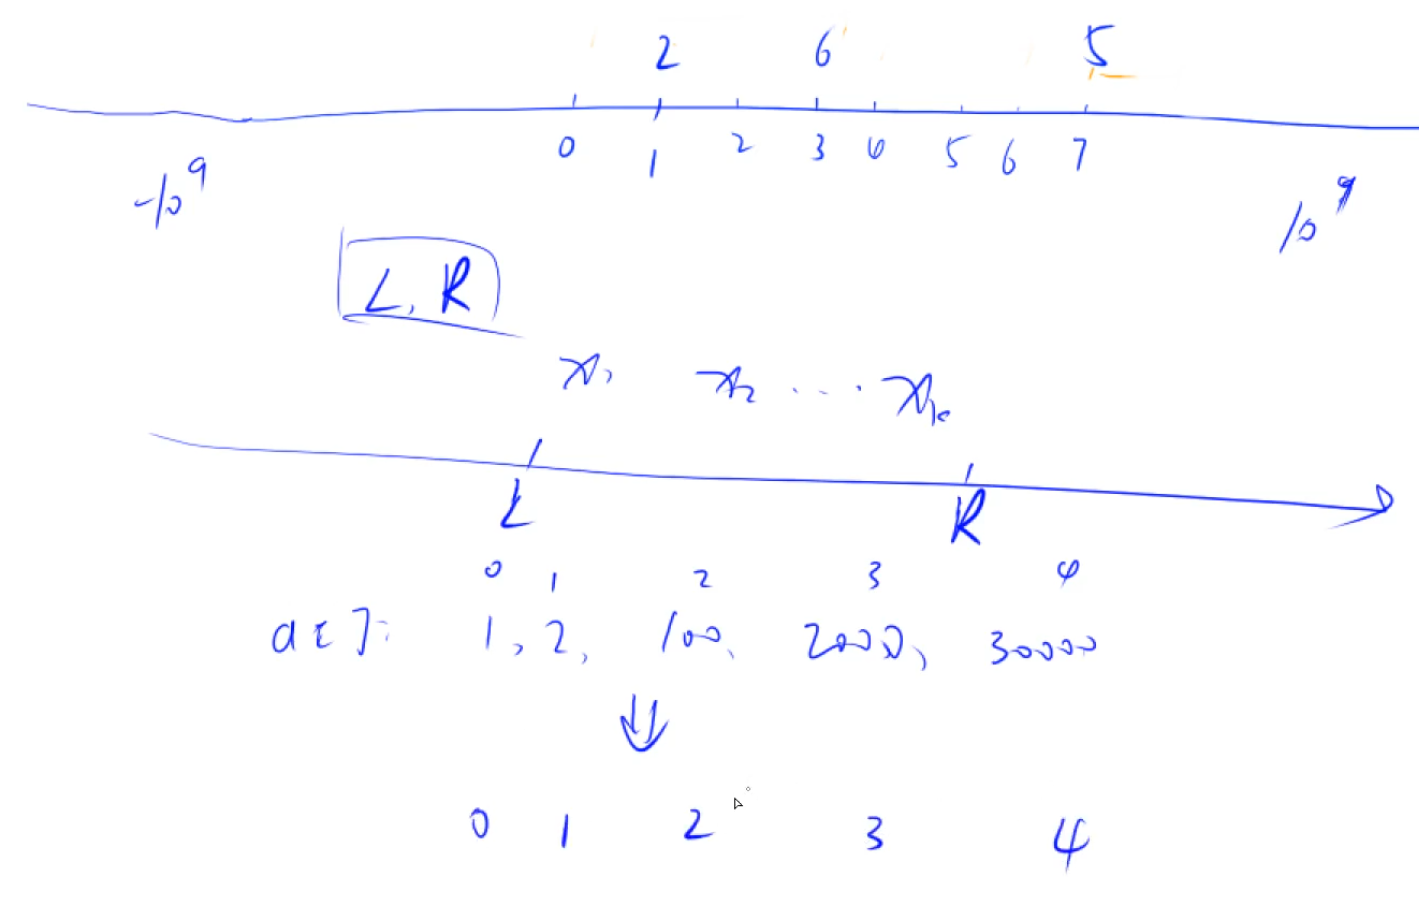 2 6 5
0 1 2 3 4 5 6 7
-10^9 10^9
L, R
x1 x2 ... xk
L R
0 1 2 3 4
a[]: 1, 2, 100, 2000, 30000
⇓
0 1 2 3 4